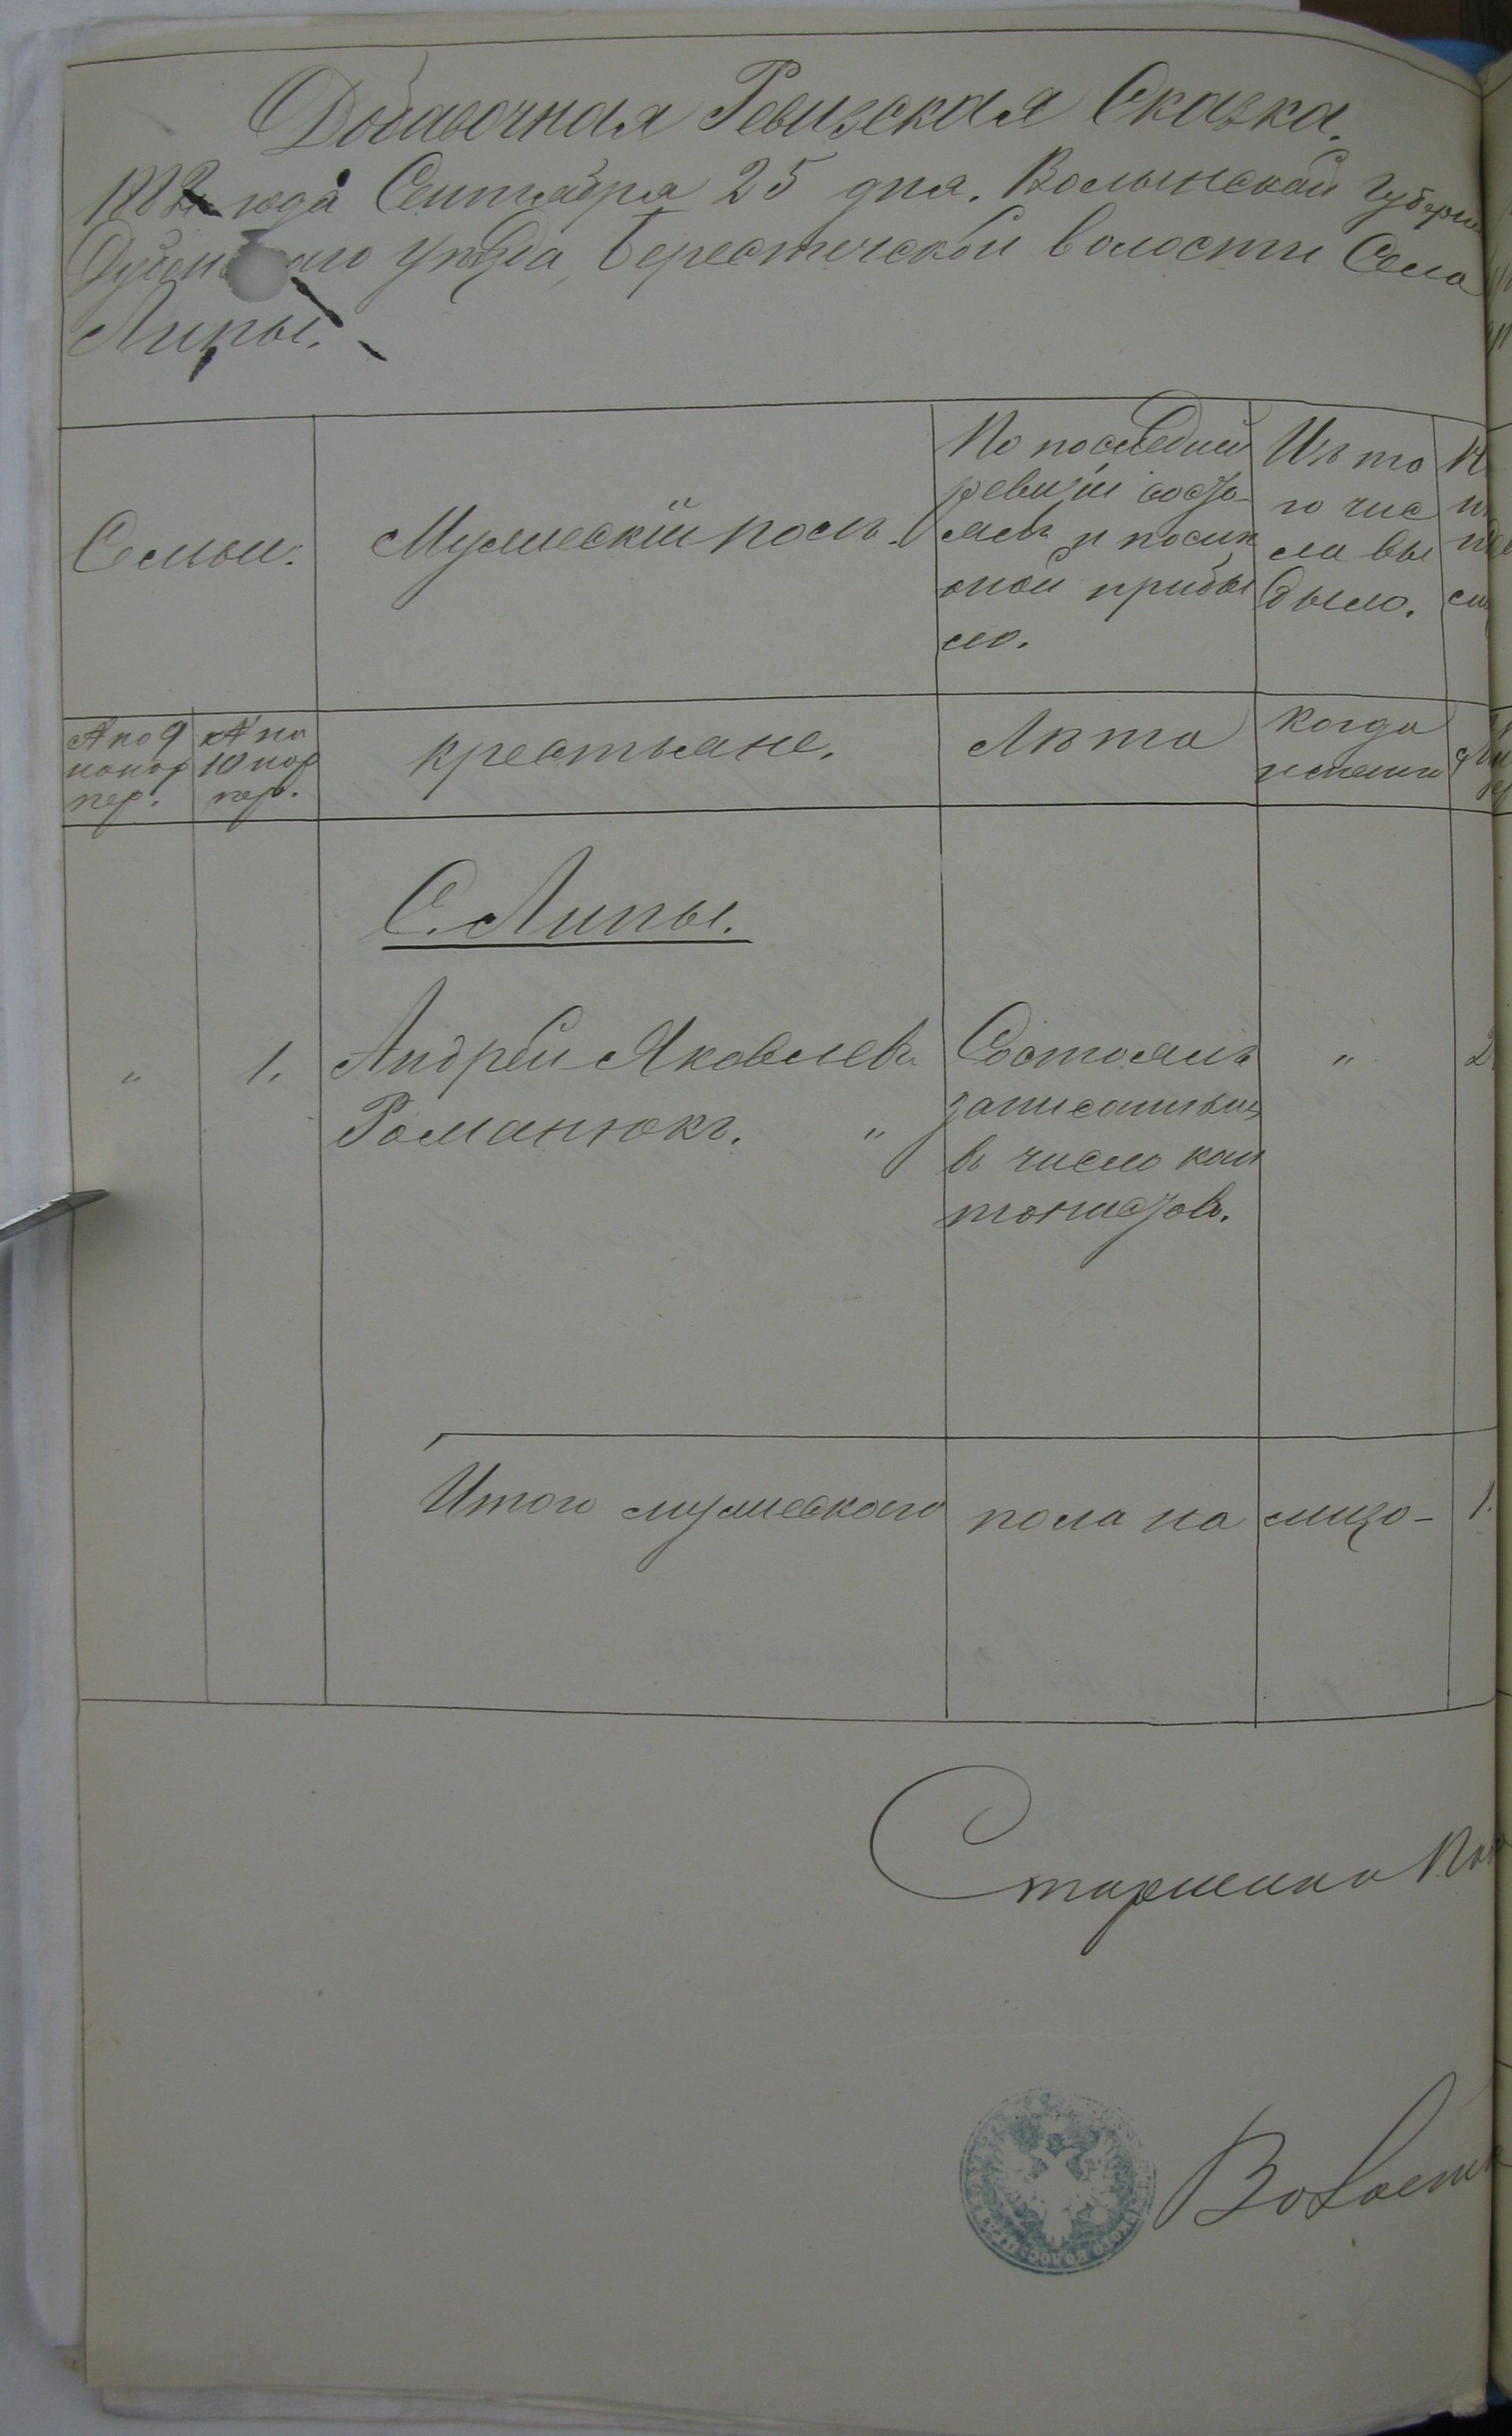 Добавочная Ревизская Сказка.
1882 года Сентября 25 дня. Волынской Губерніи
уѣзда, Берестечской волости Села
Липы.
Семьи.
Мужескій полъ.
По послѣдней
ревизіи состо-
ялъ и послѣ
оной прибы
ло.
Изъ то
го чис
ла вы
было.
№ по 9
нонор
пер.
№ по
10 нор
пер.
крестьяне.
Лѣта
Когда
именно
С. Липы.
" 1. Андрей Яковлевъ
Романюкъ. "
Состоялъ
записаннымъ
въ число кан
тонистовъ.
"
2
Итого мужескаго пола на лицо- 1.
Старшина